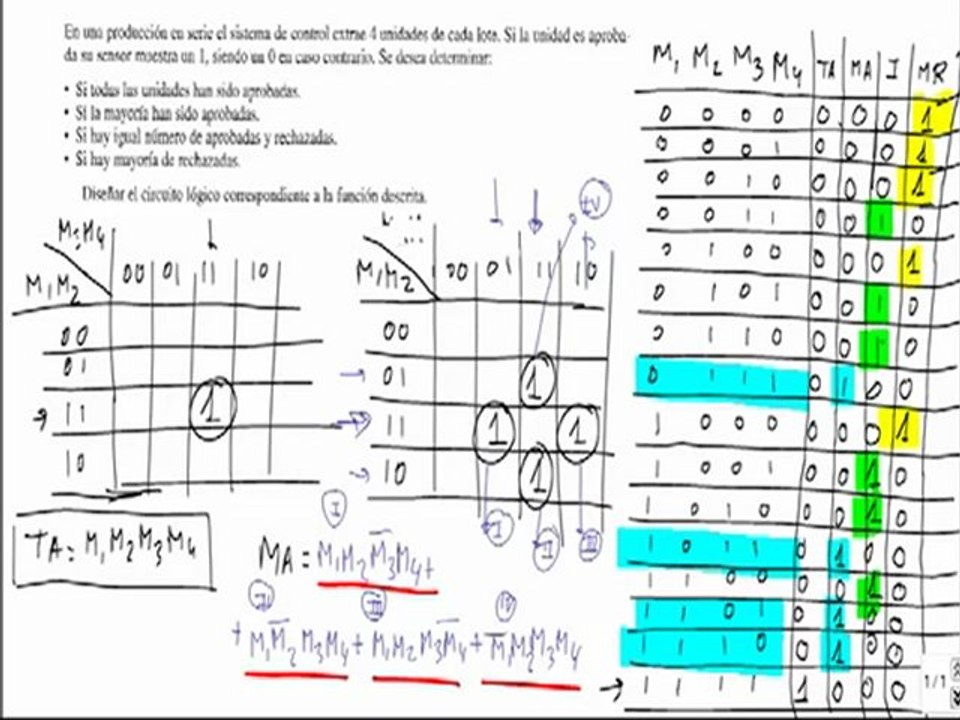 En una producción en serie el sistema de control extrae 4 unidades de cada lote. Si la unidad es aproba-
da su sensor muestra un 1, siendo un 0 en caso contrario. Se desea determinar:
• Si todas las unidades han sido aprobadas.
• Si la mayoría han sido aprobadas.
• Si hay igual número de aprobadas y rechazadas.
• Si hay mayoría de rechazadas.
Diseñar el circuito lógico correspondiente a la función descrita.
M₁ M₂ M₃ M₄ TA MA I MR
0 0 0 0 0 0 0 1
0 0 0 1 0 0 0 1
0 0 1 0 0 0 0 1
0 0 1 1 0 0 1 0
0 1 0 0 0 0 0 1
0 1 0 1 0 0 1 0
0 1 1 0 0 0 1 0
0 1 1 1 0 1 0 0
1 0 0 0 0 0 0 1
1 0 0 1 0 0 1 0
1 0 1 0 0 0 1 0
1 0 1 1 0 1 0 0
1 1 0 0 0 0 1 0
1 1 0 1 0 1 0 0
1 1 1 0 0 1 0 0
1 1 1 1 1 0 0 0
M₃M₄
M₁M₂ 00 01 11 10
00
01
11 1
10
TA = M₁M₂M₃M₄
IV
M₁M₂ 00 01 11 10
00
01 1
11 1 1
10 1
I II III
I
MA = M₁M₂M̅₃M₄+
II III IV
+ M₁M̅₂M₃M₄ + M₁M₂M₃M̅₄ + M̅₁M₂M₃M₄
1/1